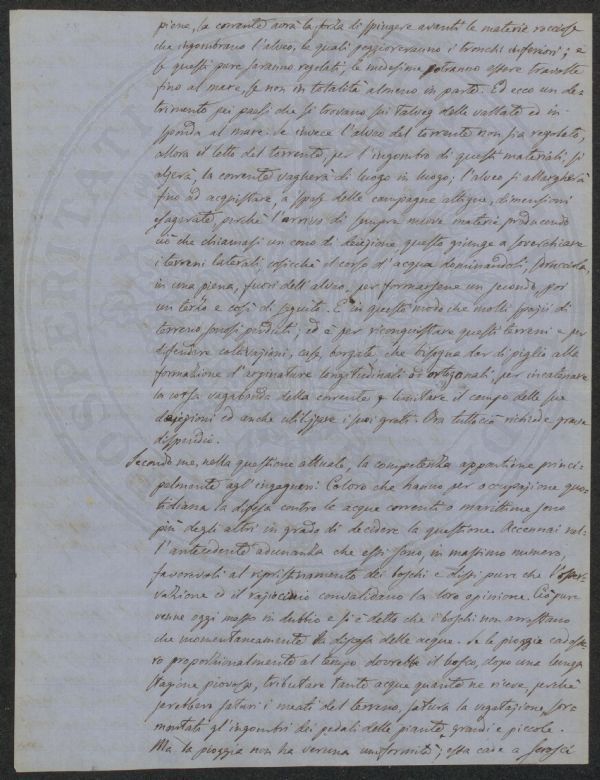 piene, la corrente avrà la forza di spingere avanti le materie rocciose
che ingombrano l'alveo, le quali peggioreranno i tronchi inferiori; e
se questi pure saranno regolati, le medesime potranno essere travolte
fino al mare, se non in totalità almeno in parte. Ed ecco un de-
trimento pei paesi che si trovano sui Talveg delle vallate ed in
sponda al mare. Se invece l'alveo del torrente non sia regolato,
allora il letto del torrente, per l'ingombro di questi materiali, si
alzerà, la corrente vagherà di luogo in luogo; l'alveo si allargherà
fino ad acquistare, a spese delle campagne attigue, dimensioni
esagerate, perchè l'arrivo di sempre nuove materie producendo
ciò che chiamasi un cono di deiezione questo giunge a soverchiare
i terreni laterali, cosicchè il corso d'acqua dominandoli, sdrucciola,
in una piena, fuori dell'alveo, per formarsene un secondo, poi
un terzo e così di seguito. E in questo modo che molti spazii di
terreno sonosi perduti; ed è per riconquistare questi terreni e per
difendere coltivazioni, case, borgate che bisogna dar di piglio alla
formazione d'arginature longitudinali od ortogonali, per incatenare
la corsa vagabonda della corrente e limitare il campo delle sue
dejezioni ed anche utilizzare i suoi gretti. Ora tutto ciò richiede grave
dispendio.
Secondo me, nella questione attuale, la competenza appartiene princi-
palmente agl'ingegneri. Coloro che hanno per occupazione quo-
tidiana la difesa contro le acque correnti o marittime sono
più degli altri in grado di decidere la questione. Accennai nel-
l'antecedente adunanza che essi sono, in massimo numero,
favorevoli al ripristinamento dei boschi e dissi pure che l'osser-
vazione ed il raziocinio convalidano la loro opinione. Ciò pure
venne oggi messo in dubbio e si è detto che i boschi non arrestano
che momentaneamente la discesa delle acque. Se le pioggie cadesse-
ro proporzionalmente al tempo dovrebbe il bosco, dopo una lunga
stagione piovosa, tributare tante acque quante ne riceve, perchè
sarebbero saturi i meati del terreno, satura la vegetazione, sor-
montati gl'ingombri dei pedali delle piante, grandi e piccole.
Ma la pioggia non ha veruna uniformità; essa cade a scrosci